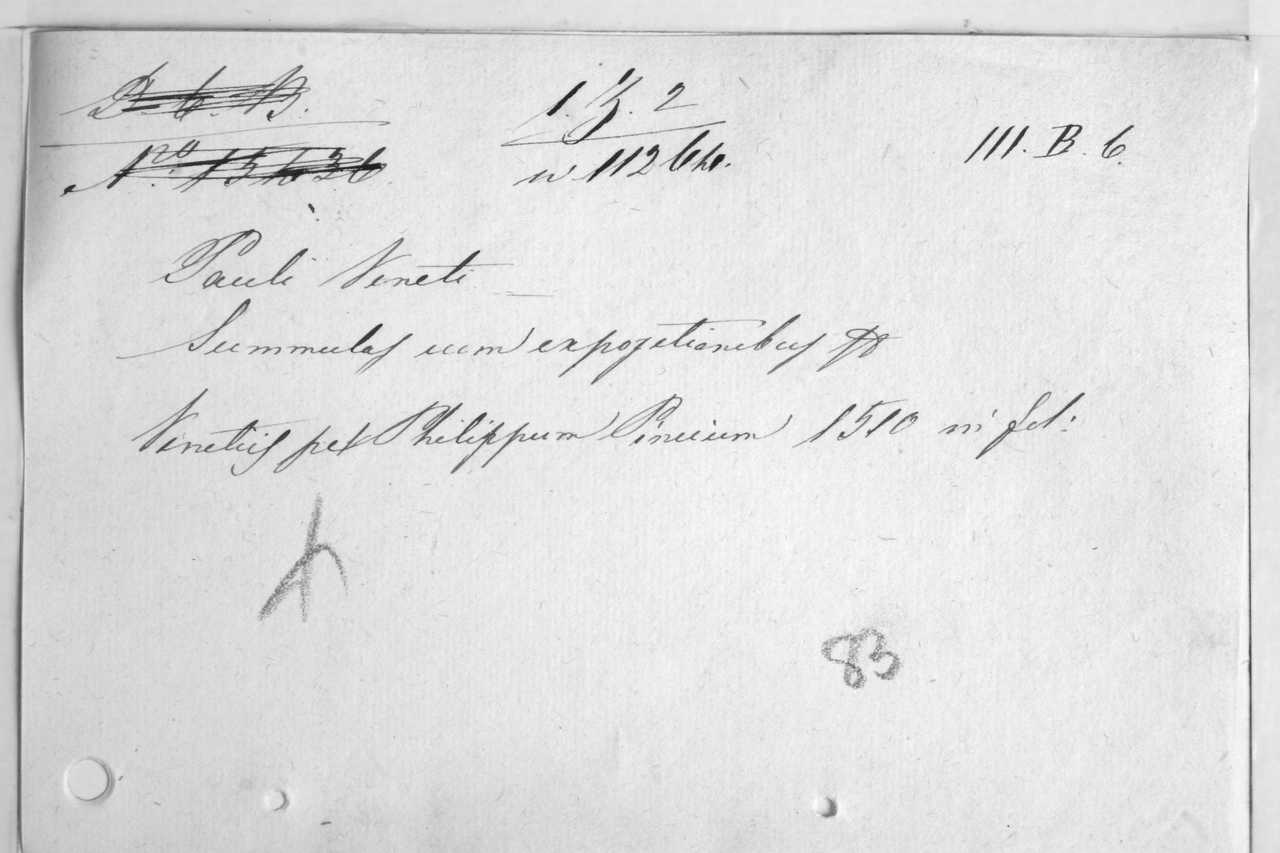 D. 6. B.
Nro 15636
1. Z. 2
III. B. 6.
Pauli Veneti
Summulas cum expositionibus
Venetiis per Philippum Pincium 1510 in fol:
83